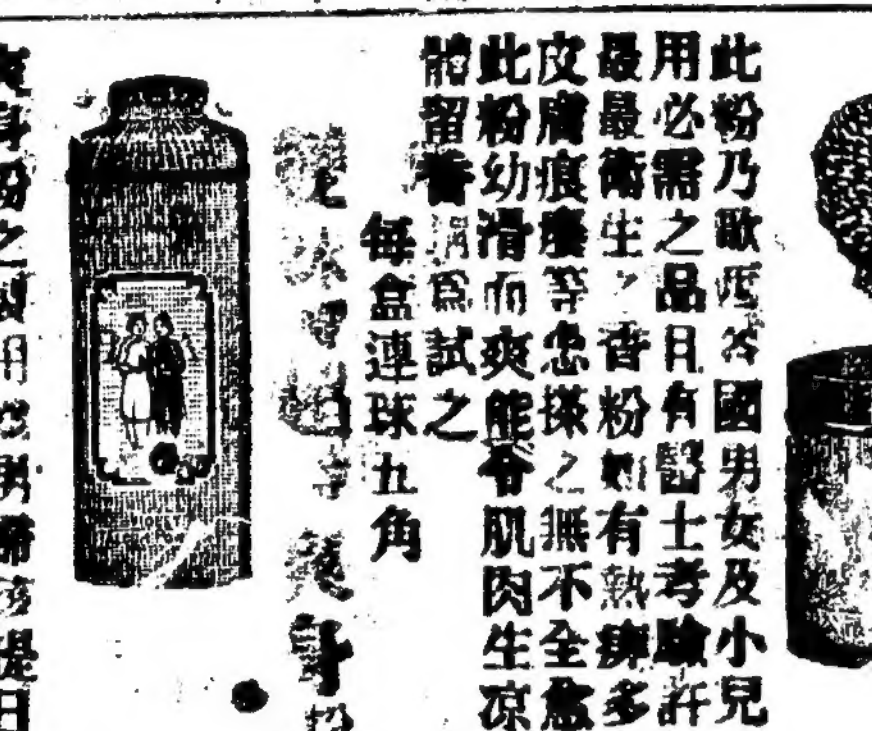 此粉乃歐西各國男女及小兒
用必需之品且有醫士考驗許
最最衛生之香粉如有熱痱多
皮膚痕癢等患搽之無不全愈
此粉幼滑而爽能令肌肉生凉
體留香請爲試之
每盒連球五角
爽身粉
爽身粉之製用 男 提